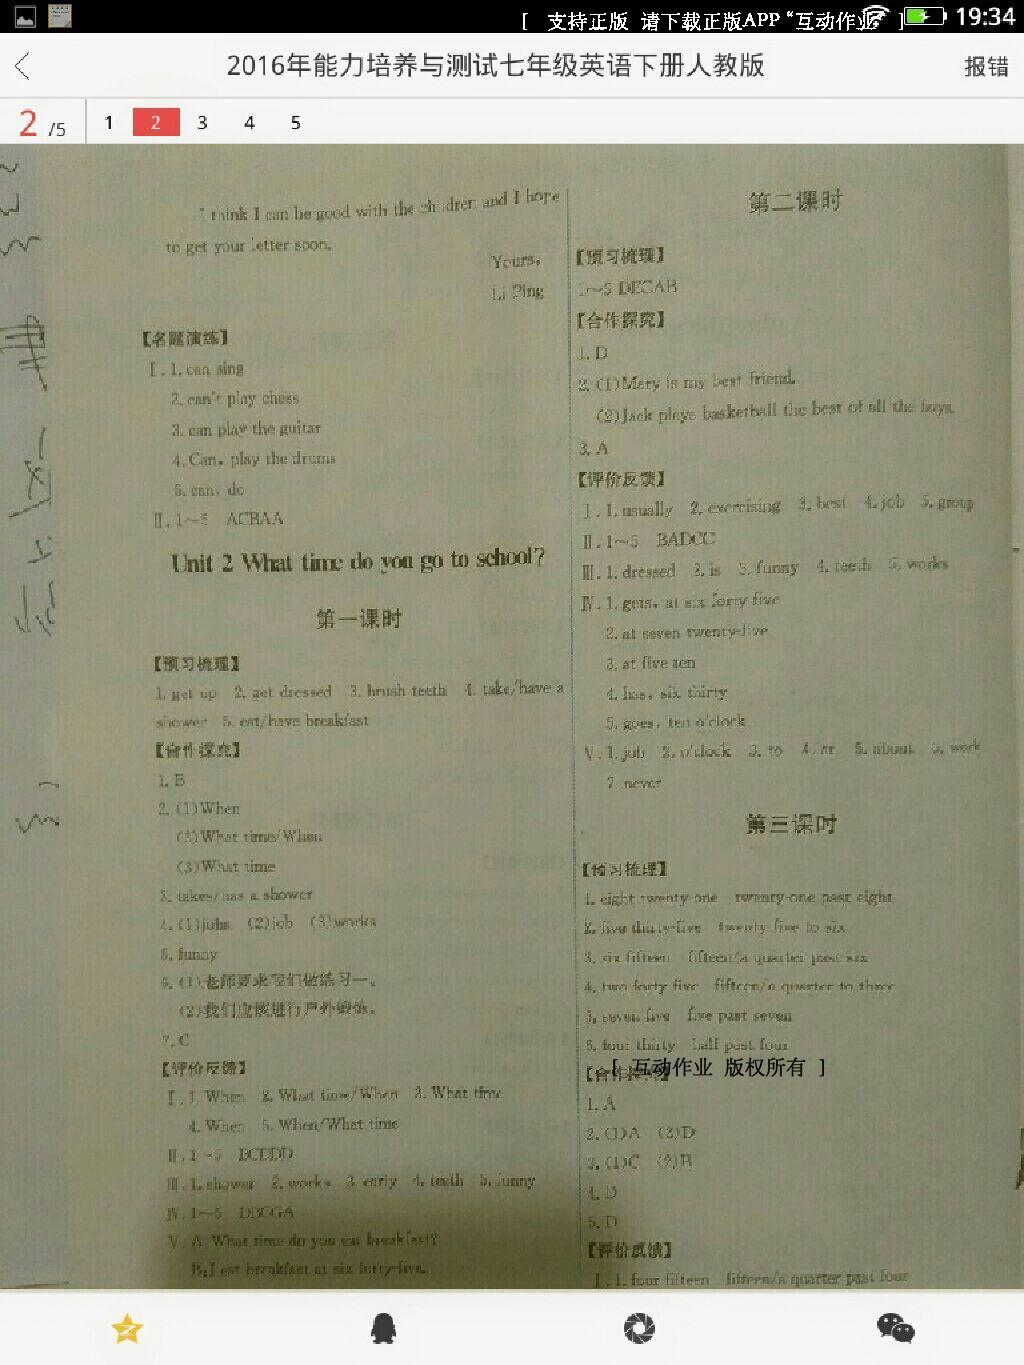 [ 支持正版 请下载正版APP“互动作业” ] 19:34
2016年能力培养与测试七年级英语下册人教版 报错
2 /5 1 2 3 4 5
think I can be good with the children and I hope
to get your letter soon.
Yours,
Li Ping
【名题演练】
Ⅰ. 1. can sing
2. can't play chess
3. can play the guitar
4. Can, play the drums
5. can, do
Ⅱ. 1~5 ACBAA
Unit 2 What time do you go to school?
第一课时
【预习梳理】
1. get up 2. get dressed 3. brush teeth 4. take/have a
shower 5. eat/have breakfast
【合作探究】
1. B
2. (1)When
(2)What time/When
(3)What time
3. takes/has a shower
4. (1)jobs (2)job (3)works
5. funny
6. (1)老师要求我们做练习一。
(2)我们应该进行户外锻炼。
7. C
【评价反馈】
Ⅰ. 1. When 2. What time/When 3. What time
4. When 5. When/What time
Ⅱ. 1~5
Ⅲ. 1. shower 2. works 3. early 4. teeth 5. funny
Ⅳ. 1~5
Ⅴ. A: What time do you eat breakfast?
B: I eat breakfast at six forty-five.
第二课时
【预习梳理】
1~5 DECAB
【合作探究】
1. D
2. (1)Mary is my best friend.
(2)Jack plays basketball the best of all the boys.
3. A
【评价反馈】
Ⅰ. 1. usually 2. exercising 3. best 4. job 5. group
Ⅱ. 1~5 BADCC
Ⅲ. 1. dressed 2. is 3. funny 4. teeth 5. works
Ⅳ. 1. gets, at six forty-five
2. at seven twenty-five
3. at five ten
4. has, six thirty
5. goes, ten o'clock
Ⅴ. 1. job 2. o'clock 3. to 4. at 5. about 6. work
7. never
第三课时
【预习梳理】
1. eight twenty-one twenty-one past eight
2. five thirty-five twenty-five to six
3. six fifteen fifteen/a quarter past six
4. two forty-five fifteen/a quarter to three
5. seven five five past seven
6. four thirty half past four
[ 互动作业 版权所有 ]
1. A
2. (1)A (2)D
3. (1)C (2)B
4.
5. D
【评价反馈】
Ⅰ. 1. four fifteen fifteen/a quarter past four